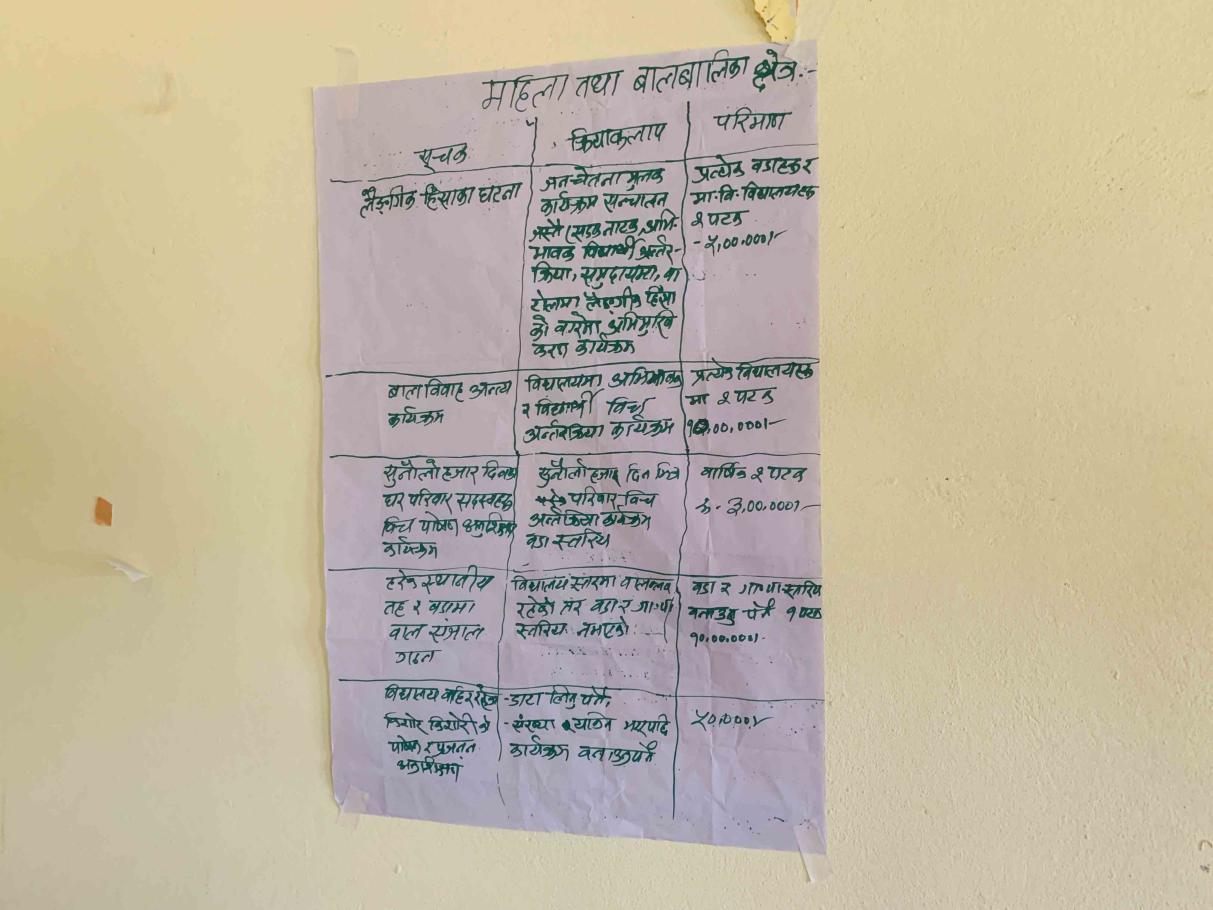 महिला तथा बालबालिका क्षेत्र :-
सूचक
क्रियाकलाप
परिमाण
लैङ्गिक हिंसाका घटना
जनचेतना मुलक
कार्यक्रम सञ्चालन
जस्तै (सडक नाटक, अभि-
भावक विद्यार्थी अर्न्तर-
क्रिया, समुदायमा, वा
टोलमा लैङ्गीक हिंसा
को वारेमा अभिमुखि
करण कार्यक्रम
प्रत्येक वडाहरु र
मा.वि. विद्यालयहरु
२ पटक
- ५,००,०००/-
बाल विवाह अन्त्य
कार्यक्रम
विद्यालयमा अभिभावक
र विद्यार्थी विच
अर्न्तरक्रिया कार्यक्रम
प्रत्येक विद्यालयहरु
मा २ पटक
००,०००/-
सुनौलो हजार दिनका
घर परिवार सदस्यहरु
विच पोषण
कार्यक्रम
सुनौलो हजार दिन भित्र
परिवार विच
अर्न्तक्रिया कार्यक्रम
वडा स्तरिय
वार्षिक २ पटक
रु. ३,००,०००/-
हरेक स्थानीय
तह र वडामा
वाल संजाल
गठन
विद्यालय स्तरमा वालक्लव
रहेको तर वडा र गा.पा
स्तरिय नभएको
वडा र गा.पा स्तरिय
वनाउनु पर्ने १ पटक
१०,००,०००/-
विद्यालय वाहिर रहेका
किशोर किशोरी को
पोषण र प्रजनन
- डाटा लिनु पर्ने,
- संख्या यकिन भएपछि
कार्यक्रम वनाउनुपर्ने
५०,०००/-